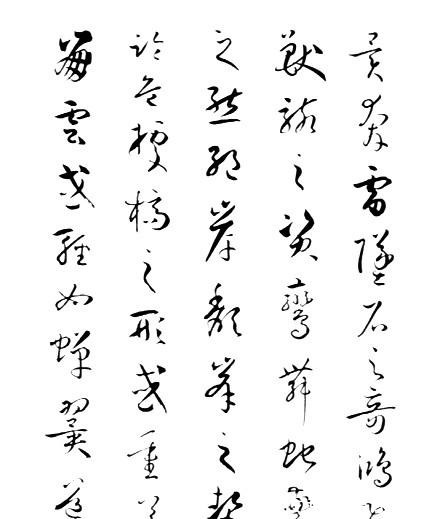 異奔雷墜石之奇鴻
獸駭之資鸞舞蛇驚
之態絕岸頹峯之勢
臨危據槁之形或重若
崩雲或輕如蟬翼導